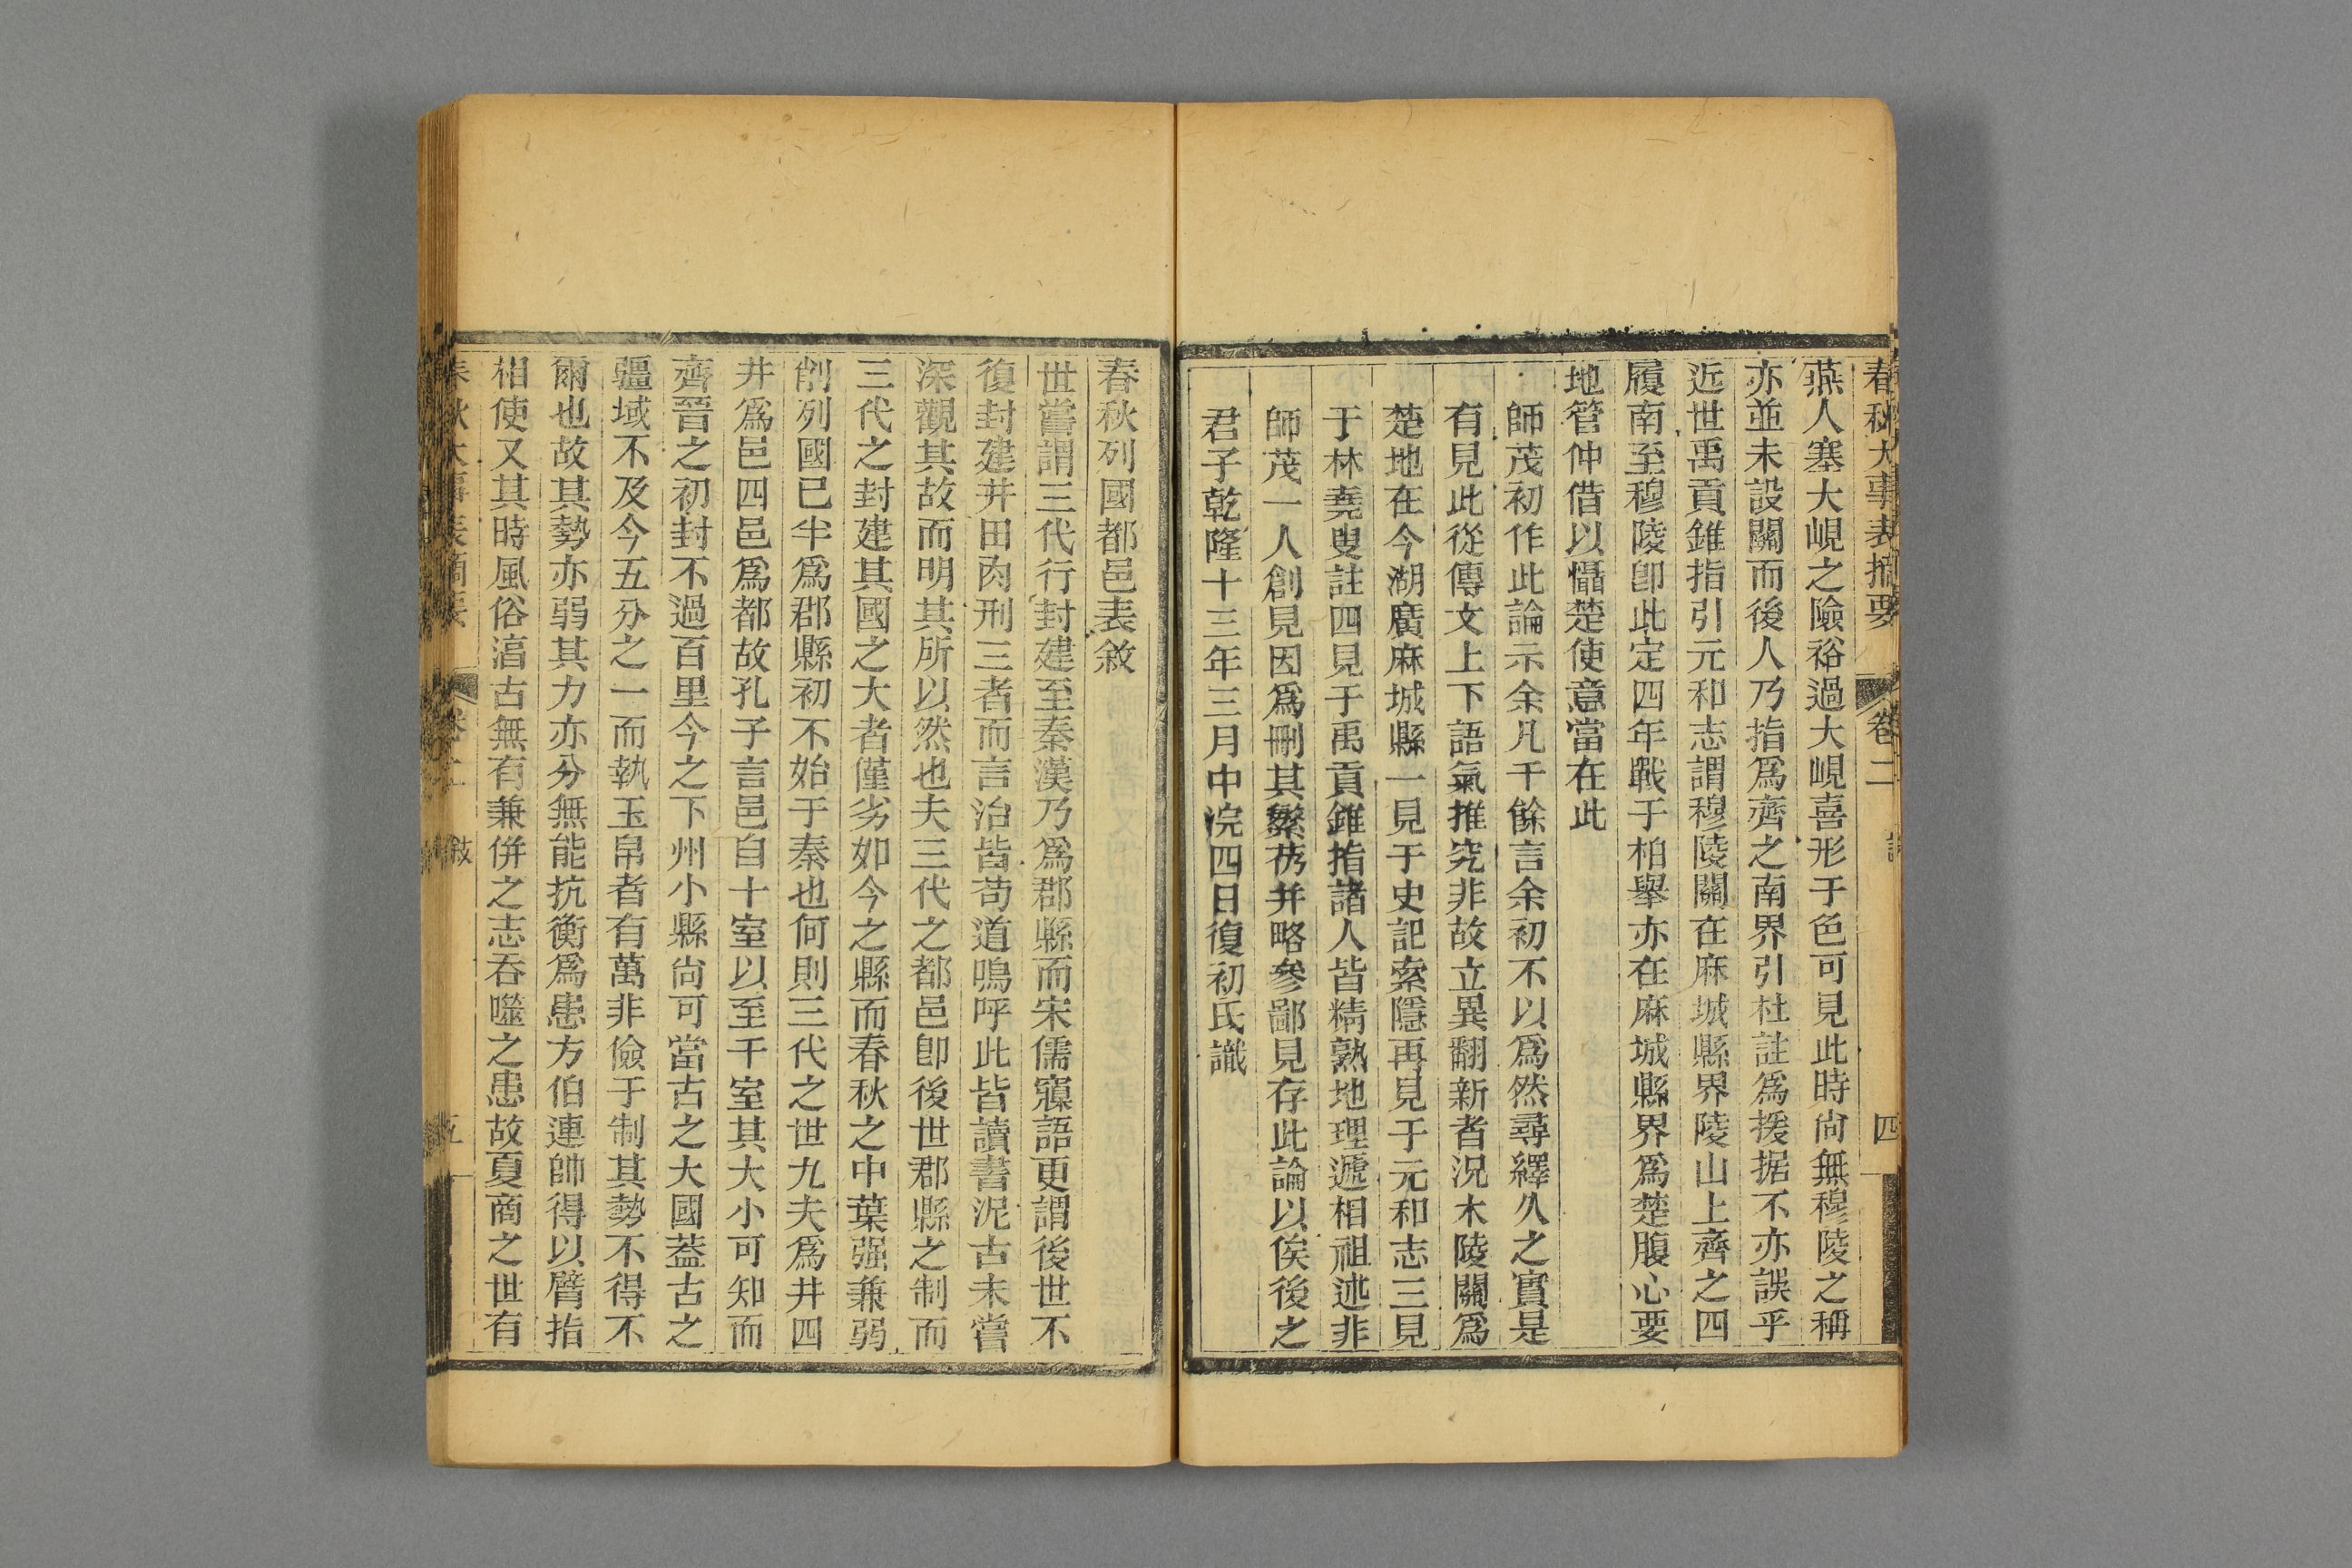 春秋大事表摘要 卷二 四
燕人塞大峴之險裕過大峴喜形于色可見此時尙無穆陵之稱
亦並未設關而後人乃指爲齊之南界引杜註爲援据不亦誤乎
近世禹貢錐指引元和志謂穆陵關在麻城縣界陵山上齊之四
履南至穆陵卽此定四年戰于柏舉亦在麻城縣界爲楚腹心要
地管仲借以懾楚使意當在此
師茂初作此論示余凡千餘言余初不以爲然尋繹久之實是
有見此從傳文上下語氣推究非故立異翻新者況木陵關爲
楚地在今湖廣麻城縣一見于史記索隱再見于元和志三見
于林堯叟註四見于禹貢錐指諸人皆精熟地理遞相祖述非
師茂一人創見因爲刪其繁蕪并略參鄙見存此論以俟後之
君子乾隆十三年三月中浣四日復初氏識
春秋列國都邑表敘
世嘗謂三代行封建至秦漢乃爲郡縣而宋儒寱語更謂後世不
復封建井田肉刑三者而言治皆苟道嗚呼此皆讀書泥古未嘗
深觀其故而明其所以然也夫三代之都邑卽後世郡縣之制而
三代之封建其國之大者僅劣如今之縣而春秋之中葉强兼弱
削列國已半爲郡縣初不始于秦也何則三代之世九夫爲井四
井爲邑四邑爲都故孔子言邑自十室以至千室其大小可知而
齊晉之初封不過百里今之下州小縣尙可當古之大國蓋古之
疆域不及今五分之一而執玉帛者有萬非儉于制其勢不得不
爾也故其勢亦弱其力亦分無能抗衡爲患方伯連帥得以臂指
相使又其時風俗湻古無有兼併之志吞噬之患故夏商之世有
春秋大事表摘要 卷二 敘 五